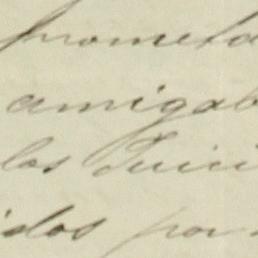 prometa
amigab
los Juici
idos por